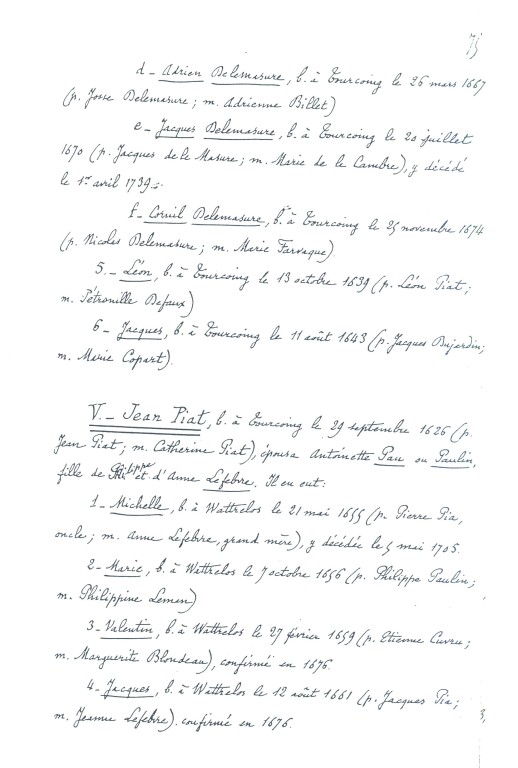 75
d - Adrien Delemasure, b. à Tourcoing le 26 mars 1667
(p. Josse Delemasure ; m. Adrienne Billet)
e - Jacques Delemasure, b. à Tourcoing le 20 juillet
1670 (p. Jacques de le Masure ; m. Marie de le Cambre), y décédé
le 1er avril 1739.
f - Cornil Delemasure, b. à Tourcoing le 25 novembre 1674
(p. Nicolas Delemasure ; m. Marie Farvaque).
5. - Léon, b. à Tourcoing le 13 octobre 1639 (p. Léon Piat ;
m. Pétronille Defaux)
6 - Jacques, b. à Tourcoing le 11 août 1643 (p. Jacques Dujardin ;
m. Marie Copart).
V. - Jean Piat, b. à Tourcoing le 29 septembre 1626 (p.
Jean Piat ; m. Catherine Piat), épousa Antoinette Pau ou Paulin,
fille de Philippe et d'Anne Lefebvre. Il en eut :
1 - Michelle, b. à Wattrelos le 21 mai 1655 (p. Pierre Pia,
oncle ; m. Anne Lefebvre, grand mère), y décédée le 5 mai 1705.
2 - Marie, b. à Wattrelos le 7 octobre 1656 (p. Philippe Paulin ;
m. Philippine Leman)
3 - Valentin, b. à Wattrelos le 27 février 1659 (p. Etienne Cuvru ;
m. Marguerite Blondeau), confirmé en 1676.
4 - Jacques, b. à Wattrelos le 12 août 1661 (p. Jacques Pia ;
m. Jeanne Lefebvre). confirmé en 1676.